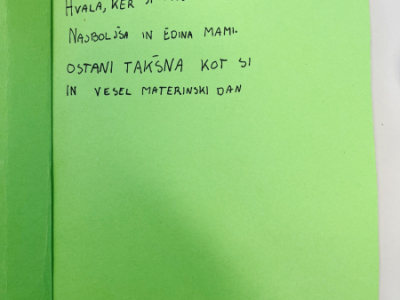 HVALA, KER SI
NAJBOLJŠA IN EDINA MAMI.
OSTANI TAKŠNA KOT SI
IN VESEL MATERINSKI DAN